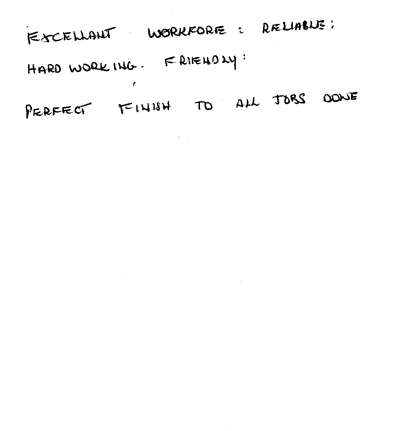 EXCELLANT WORKFORE : RELIABLE ;
HARD WORKING. FRIENDLY :
PERFECT FINISH TO ALL JOBS DONE